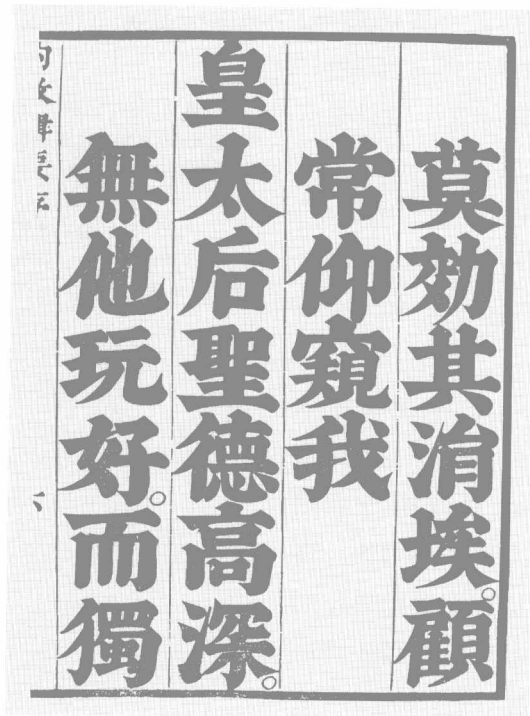 莫効其涓埃。顧
常仰窺我
皇太后聖德高深。
無他玩好。而獨